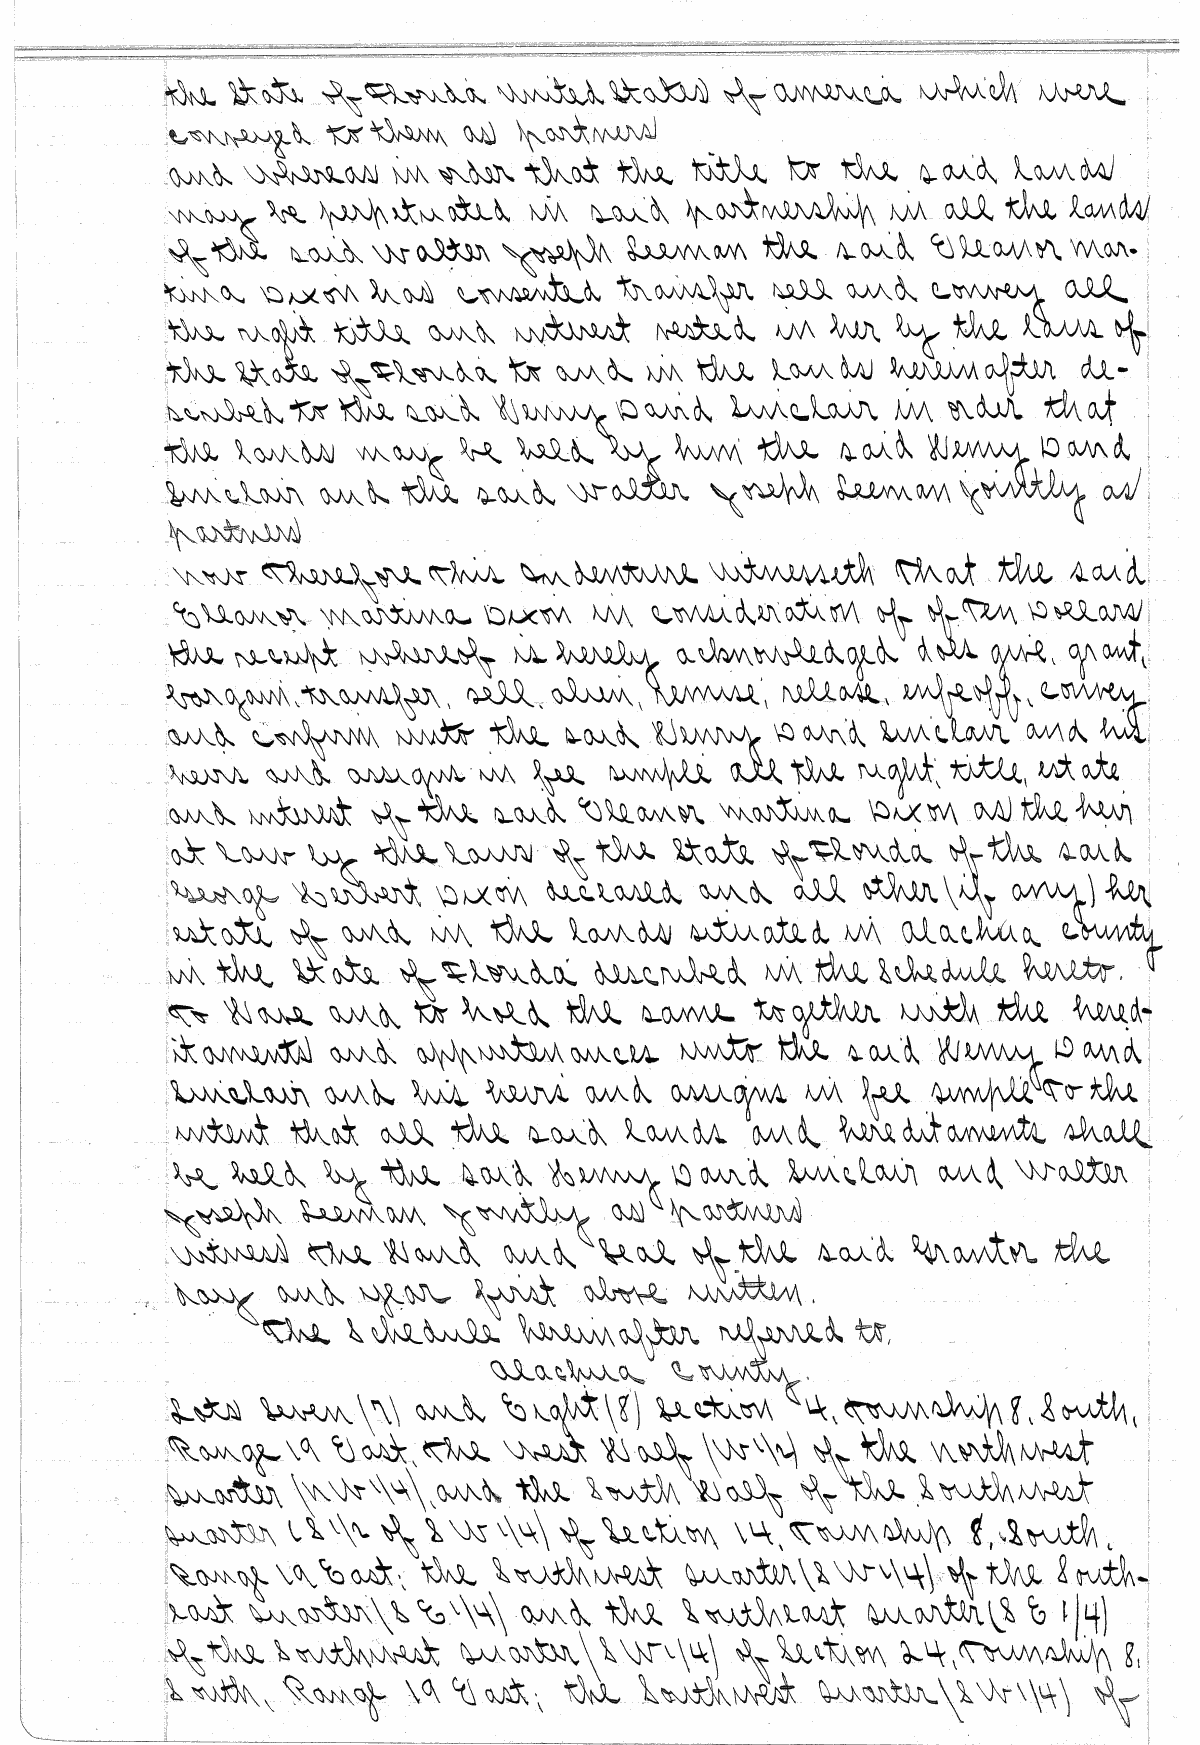 the State of Florida United States of America which were
conveyed to them as partners
and whereas in order that the title to the said lands
may be perpetuated in said partnership in all the lands
of the said Walter Joseph Seeman the said Eleanor Mar-
tina Dixon has consented transfer sell and convey all
the right title and interest vested in her by the laws of
the State of Florida to and in the lands hereinafter de-
scribed to the said Henry David Sinclair in order that
the lands may be held by him the said Henry David
Sinclair and the said Walter Joseph Seeman jointly as
partners
Now Therefore This Indenture Witnesseth That the said
Eleanor Martina Dixon in consideration of of Ten Dollars
the receipt whereof is hereby acknowledged does give, grant,
bargain, transfer, sell, alien, remise, release, enfeoff, convey
and confirm unto the said Henry David Sinclair and his
heirs and assigns in fee simple all the right, title, estate
and interest of the said Eleanor Martina Dixon as the heir
at law by the laws of the State of Florida of the said
George Herbert Dixon deceased and all other (if any) her
estate of and in the lands situated in Alachua County
in the State of Florida described in the Schedule hereto.
To Have and to hold the same together with the hered-
itaments and appurtenances unto the said Henry David
Sinclair and his heirs and assigns in fee simple To the
intent that all the said lands and hereditaments shall
be held by the said Henry David Sinclair and Walter
Joseph Seeman jointly as partners
Witness the Hand and Seal of the said Grantor the
day and year first above written.
The Schedule hereinafter referred to.
Alachua County.
Lots Seven (7) and Eight (8) Section 4, Township 8, South,
Range 19 East, the West Half (W 1/2) of the Northwest
Quarter (NW 1/4), and the South Half of the Southwest
Quarter (S 1/2 of S W 1/4) of Section 14, Township 8, South,
Range 19 East; the Southwest Quarter (S W 1/4) of the South-
east Quarter (S E 1/4) and the Southeast Quarter (S E 1/4)
of the Southwest Quarter (S W 1/4) of Section 24, Township 8,
South, Range 19 East; the Southwest Quarter (S W 1/4) of